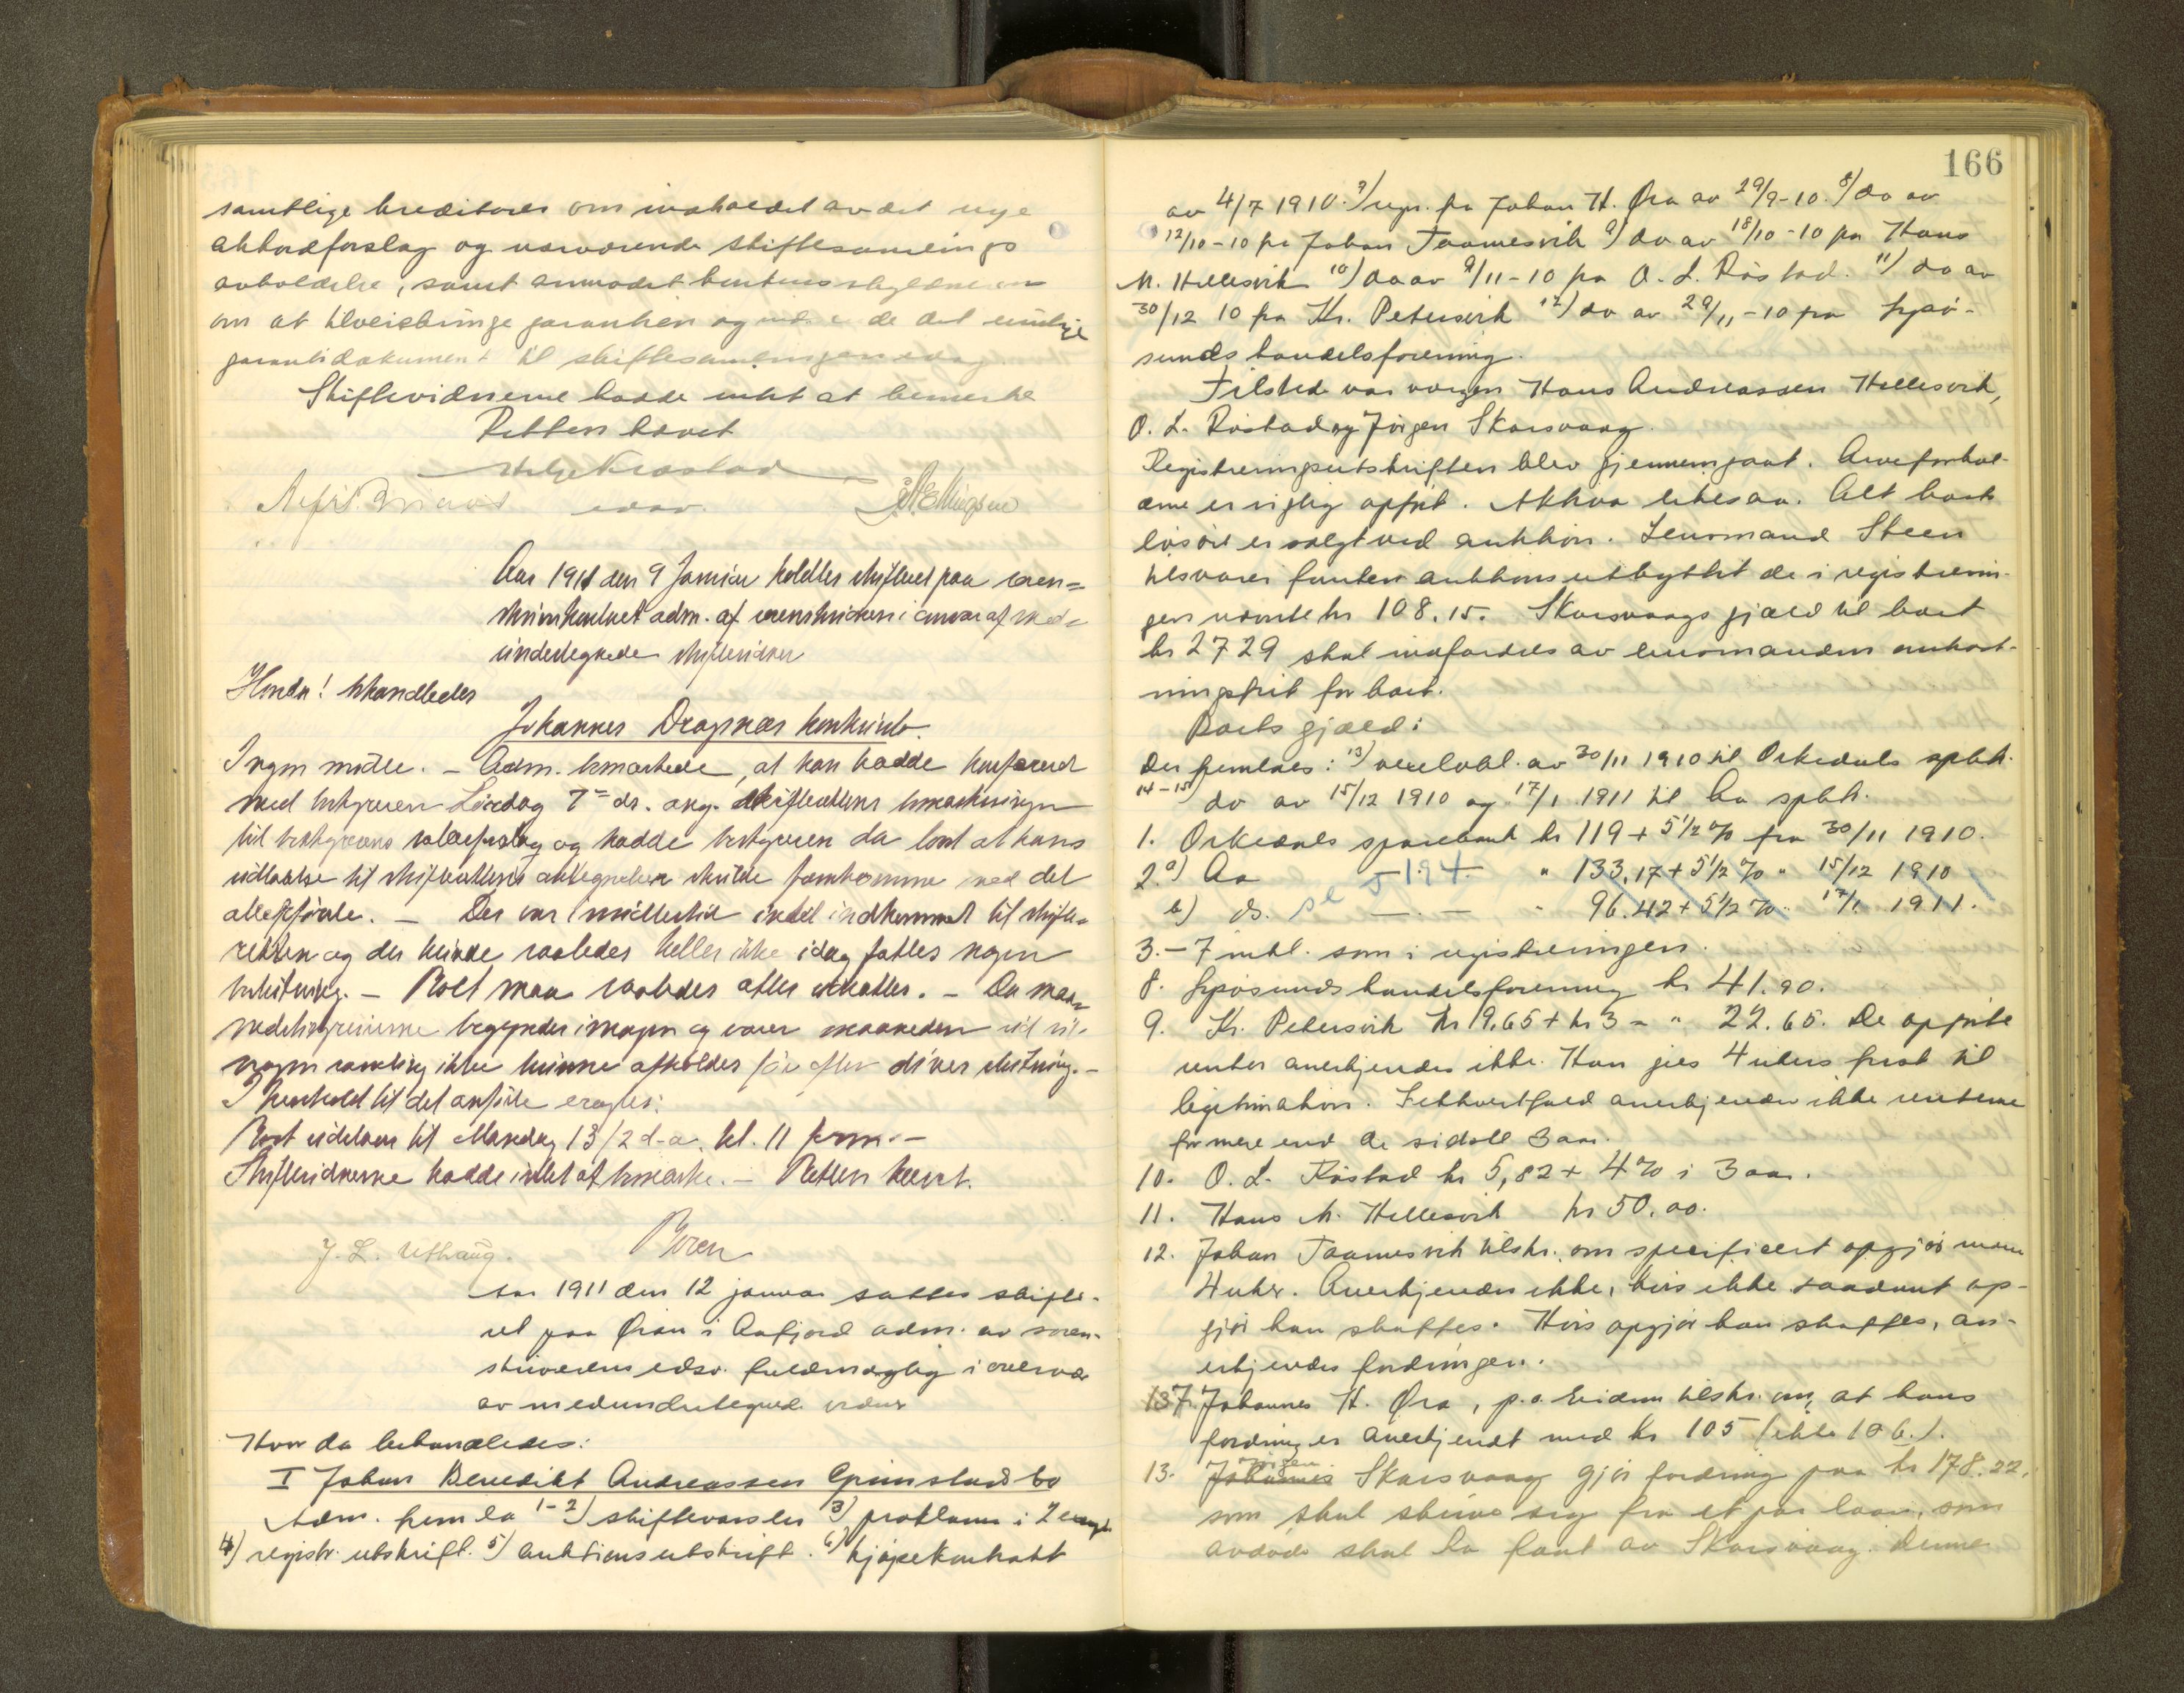 samtlige kreditorer om indholdet av det nye
akkordforslag og nærværende skiftesamlings
avholdelse, samt anmodet konkursskyldneren
om at tilveiebringe garantien og det endelige
garantidokument til skiftesamlingen idag.
Skiftevidnerne hadde intet at bemerke
Retten hævet
Aar 1911 den 9 Januar holdtes skifteret paa soren-
skriverkontoret adm. af sorenskriveren i overvær af med-
undertegnede skiftevidner
Hvorda! behandledes
Johannes Dragsnæs konkursbo.
Ingen mødte. – Adm. bemærkede, at han hadde konfereret
med bestyreren Lørdag 7de ds. ang. skifterettens bemærkninger
til bestyrerens forslag og hadde bestyreren da lovt at hans
udtalelse til skifterettens antegnelser skulde fremkomme med det
allerførste. – Der var imidlertid intet indkommet til skifte-
retten og der kunde saaledes heller ikke idag fattes nogen
beslutning. – Boet maa saaledes atter udsættes. – Da maa-
nedstingene begynder imorgen og varer maaneden ud vil
nogen samling ikke kunne afholdes før efter disses slutning. –
I henhold til det anførte eragtes:
Boet udsættes til Mandag 13/2 d-a. kl. 11 form. –
Skiftevidnerne hadde intet at bemærke. – Retten hævet.
J. L. Uthaug.
Aar 1911 den 12 januar sattes skifte-
ret paa Øran i Aafjord adm. av soren-
skriverens edsv. fuldmægtig i overvær
av medundertegnede vidner
Hvor da behandledes:
I Johan Benedikt Andreassen Grimstads bo
Adm. fremla 1-2) skiftevarsler 3) proklama i 2 expl
4) registr. utskrift. 5) auktionsutskrift. 6) kjøpekontrakt
166
av 4/7 1910. 7) regn. fra Johan H. Øra av 29/9-10. 8) do av
12/10-10 fra Johan Taamesvik 9) do av 18/10-10 fra Hans
M. Hellesvik 10) do av 9/11-10 fra O. L. Råstad. 11) do av
30/12 10 fra Kr. Petersvik 12) do av 29/11-10 fra
sunds handelsforening.
Tilstede var vergen Hans Andreassen Hellesvik,
O. L. Råstad og Jørgen Skarsvaag.
Registreringsutskriften blev gjennemgaat. Arveforhol-
dene er rigtig opført. Aktiva likesaa. Alt boets
løsøre er solgt ved auktion. Lensmand Steen
tilsvarer foruten auktionsutbyttet de i registrerin-
gen nævnte kr 108.15. Skarsvaags gjæld til boet
kr 27 29 skal indfordres av lensmanden omkost-
ningsfrit for boet.
Boets gjæld:
Der fremlaes: 13) vexelobl. av 30/11 1910 til Orkedals spbk.
14-15) do av 15/12 1910 og 17/1 1911 til Aa spbk.
1. Orkedals sparebank kr 119 + 5 1/2 % fra 30/11 1910.
2. a) Aa se 5 194 " 133,17 + 5 1/2 % " 15/12 1910
b) ds. — . — " 96.42 + 5 1/2 % " 17/1 1911.
3. – 7 inkl. som i registreringen.
8. handelsforening kr 41.90.
9. Kr. Petersvik kr 19,65 + kr 3 = " 22.65. De opførte
renter anerkjendes ikke. Han gies 4 ukers frist til
legitimation. I ethvert fald anerkjendes ikke renterne
for mere end de sidste 3 aar.
10. O. L. Råstad kr 5,82 + 4 % i 3 aar.
11. Hans M. Hellesvik kr 50.00.
12. Johan Taamesvik tilskr. om specificert opgjør innen
4 uker. Anerkjendes ikke, hvis ikke saadant op-
gjør kan skaffes. Hvis opgjør kan skaffes, an-
erkjendes fordringen.
137. Johannes H. Øra, p.a. Eidem tilskr. om, at hans
fordring er anerkjendt med kr 105 (ikke 106.).
13. Jørgen Skarsvaag gjør fordring paa kr 178.22,
som skal skrive sig fra et par laan, som
avdøde skal ha faat av Skarsvaag. Denne